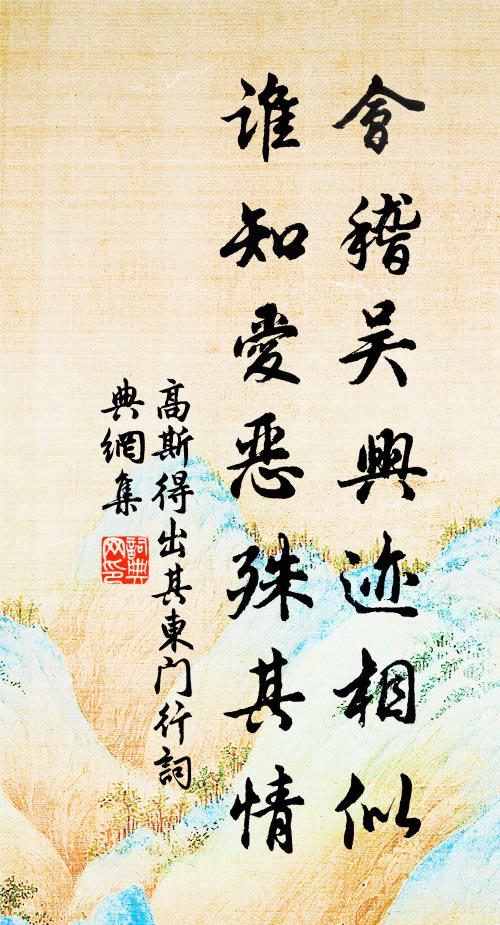 會稽吴興迹相似
誰知愛惡殊其情
高斯得出其東门行詞
典網集
詞典網印